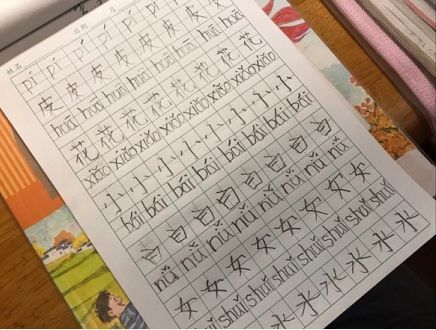 姓名 日期 月
pí pí pí pí pí pí pí
皮 皮 皮 皮 皮 皮 皮 皮
huā huā huā huā huā huā huā huā
花 花 花 花 花 花 花 花
xiǎo xiǎo xiǎo xiǎo xiǎo xiǎo xiǎo xiǎo
小 小 小 小 小 小 小 小
bái bái bái bái bái bái bái bái
白 白 白 白 白 白 白 白
nǚ nǚ nǚ nǚ nǚ nǚ nǚ nǚ
女 女 女 女 女 女 女 女
shuǐ shuǐ shuǐ shuǐ shuǐ shuǐ shuǐ shuǐ
水 水 水 水 水 水